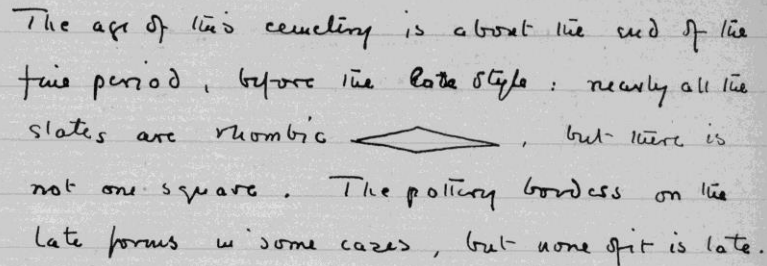 The age of this cemetery is about the end of the
fine period, before the late style: nearly all the
slates are rhombic , but there is
not one square. The pottery borders on the
late forms in some cases, but none of it is late.